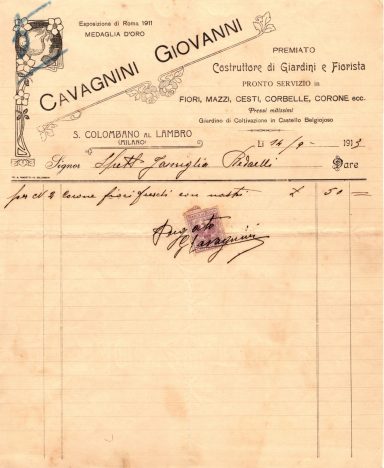 Esposizione di Roma 1911
MEDAGLIA D'ORO
CAVAGNINI GIOVANNI
PREMIATO
Costruttore di Giardini e Fiorista
PRONTO SERVIZIO in
FIORI, MAZZI, CESTI, CORBELLE, CORONE ecc.
Prezzi mitissimi
Giardino di Coltivazione in Castello Belgioioso
S. COLOMBANO AL LAMBRO
(MILANO)
Lì 14/9 - 1913
Signor Spett Famiglia Dare
per N 2 corone fiori freschi con nastri £ 50 =
Pagato
G Cavagnini